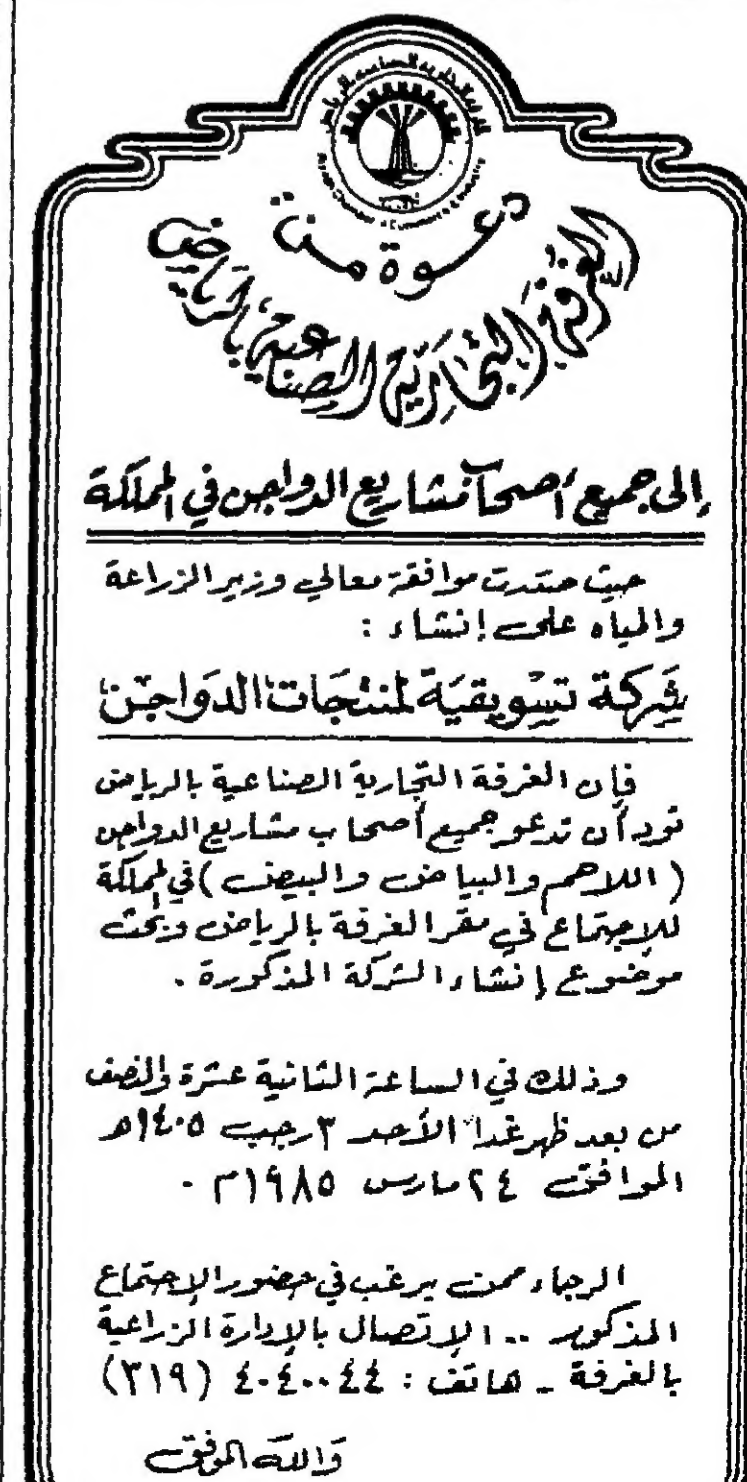 الغرفة التجارية الصناعية بالرياض
دعوة من
الغرفة التجارية الصناعية بالرياض
إلى جميع أصحاب مشاريع الدواجن في المملكة
حيث صدرت موافقة معالي وزير الزراعة
والمياه على إنشاء :
شركة تسويقية لمنتجات الدواجن
فإن الغرفة التجارية الصناعية بالرياض
تود أن تدعو جميع أصحاب مشاريع الدواجن
( اللاحم والبياض والبيض ) في المملكة
للإجتماع في مقر الغرفة بالرياض وبحث
موضوع إنشاء الشركة المذكورة .
وذلك في الساعة الثانية عشرة والنصف
من بعد ظهر غداً الأحد ٣ رجب ١٤٠٥هـ
الموافق ٢٤ مارس ١٩٨٥م .
الرجاء ممن يرغب في حضور الإجتماع
المذكور .. الإتصال بالإدارة الزراعية
بالغرفة - هاتف : ٤٠٤٠٠٤٤ (٣١٩)
والله الموفق